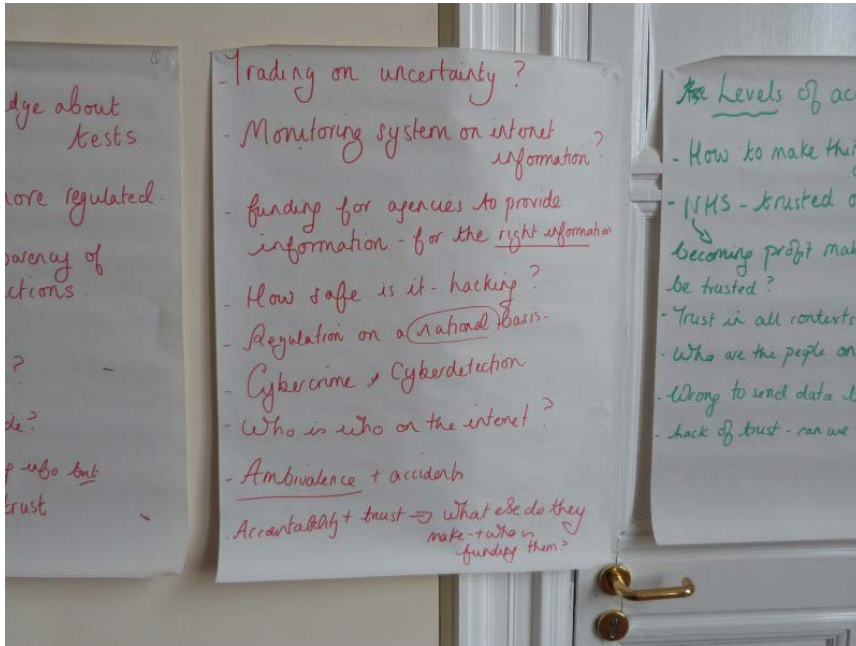 dge about
tests
ore regulated.
parency of
ctions.
?
de?
info but
trust
- Trading on uncertainty?
- Monitoring system on internet
information?
- funding for agencies to provide
information - for the right information
- How safe is it - hacking?
- Regulation on a national basis.
- Cybercrime, Cyberdetection
- Who is who on the internet?
- Ambivalence + accidents
- Accountability + trust → What else do they
make - + who is
funding them?
Levels of acc
- How to make thi
- NHS - trusted
becoming profit mak
be trusted?
- Trust in all contexts
- Who are the people on
- Wrong to send data
- Lack of trust - can we